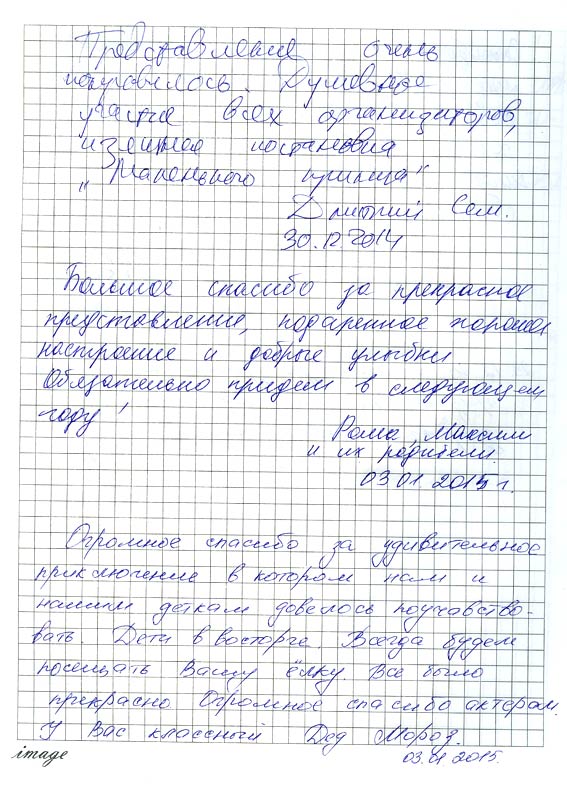 Представление очень
понравилось. Душевное
участие всех организаторов,
изящная постановка
"Маленького принца"
Дмитрий Сем.
30.12.2014
Большое спасибо за прекрасное
представление, подаренное хорошее
настроение и добрые улыбки
Обязательно придем в следующем
году!
Рома, Максим
и их родители.
03.01.2015 г.
Огромное спасибо за удивительное
приключение в котором нам и
нашим деткам довелось поучавство-
вать. Дети в восторге. Всегда будем
посещать Вашу ёлку. Все было
прекрасно Огромное спасибо актерам.
У Вас классный Дед Мороз.
03.01.2015.
image